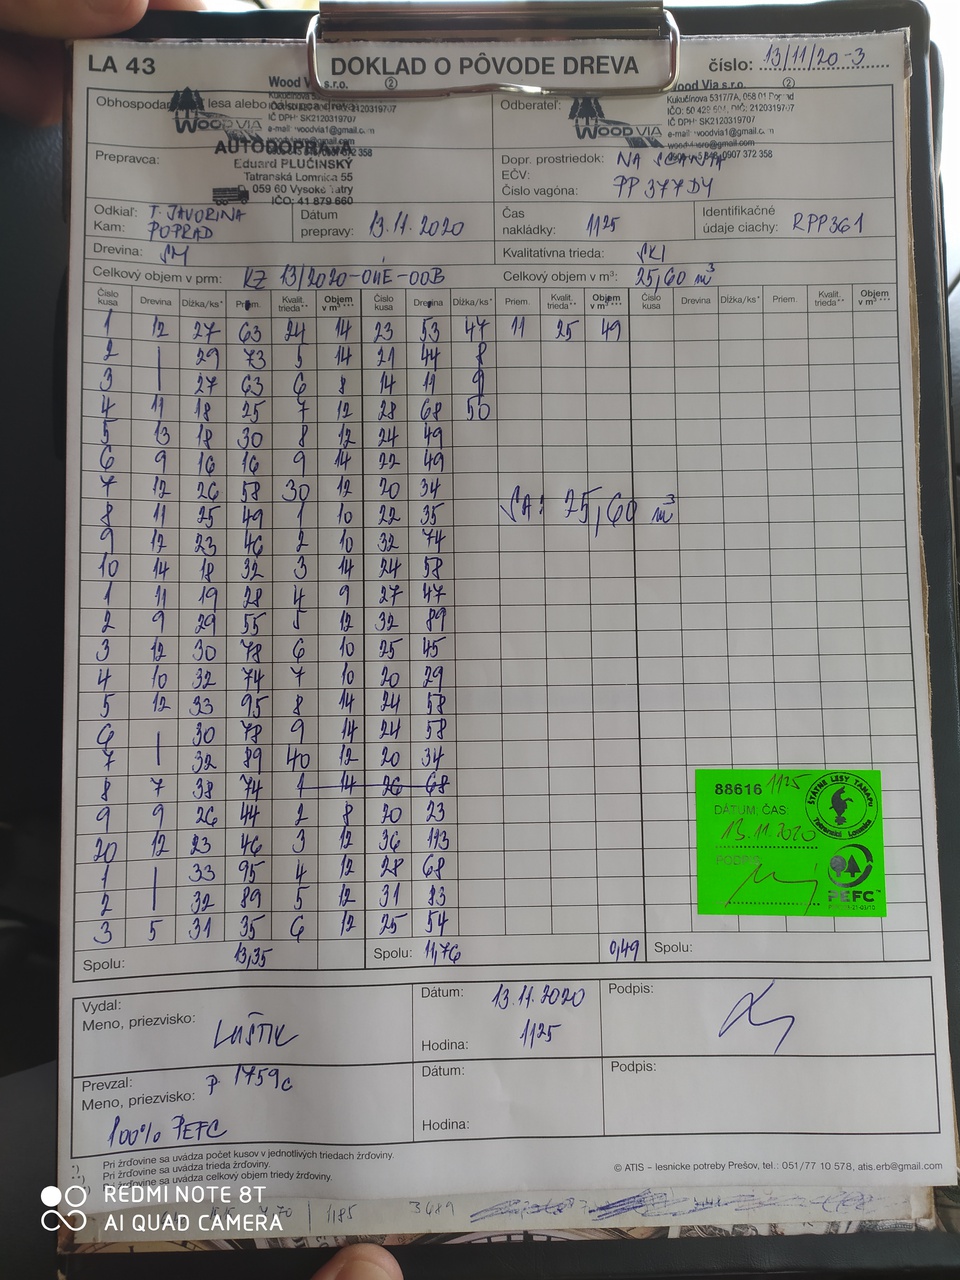 LA 43
DOKLAD O PÔVODE DREVA
číslo: 13/11/20-3
Wood Via s.r.o. ②
IČ DPH: SK2120319707
e-mail: woodvia1@gmail.com
WOOD VIA
Wood Via s.r.o. ②
Kukučínova 5317/7A, 058 01 Poprad
IČ DPH: SK2120319707
e-mail: woodvia1@gmail.com
0907 372 358
WOOD VIA
Odberateľ:
Prepravca:
AUTODOPRAVA
Eduard PLUČINSKÝ
Tatranská Lomnica 55
059 60 Vysoké Tatry
IČO: 41 879 660
Dopr. prostriedok: NA
EČV:
Číslo vagóna: PP 377DY
Odkiaľ: T. JAVORINA
Kam: POPRAD
Dátum prepravy: 13.11.2020
Čas nakládky: 1125
Identifikačné údaje ciachy: RPP361
Drevina: SM
Kvalitatívna trieda: SKI
Celkový objem v prm: KZ 13/2020-04E-00B
Celkový objem v m³: 25,60 m³
Číslo kusa Drevina Dĺžka/ks* Priem. Kvalit. trieda** Objem v m³ *** Číslo kusa Drevina Dĺžka/ks* Priem. Kvalit. trieda** Objem v m³ *** Číslo kusa Drevina Dĺžka/ks* Priem. Kvalit. trieda** Objem v m³ ***
1 12 27 63 24 14 23 53 47 11 25 49
2 | 29 73 5 14 21 44 8
3 | 27 63 6 8 14 11 9
4 11 18 25 7 12 28 68 50
5 13 18 30 8 12 24 49
6 9 16 16 9 14 22 49
7 12 26 58 30 12 20 34
8 11 25 49 1 10 22 35
SA: 25,60 m³
9 12 23 46 2 10 32 74
10 14 18 32 3 14 24 58
1 11 19 28 4 9 27 47
2 9 29 55 5 12 32 89
3 12 30 78 6 10 25 45
4 10 32 74 7 10 20 29
5 12 33 95 8 14 24 58
6 | 30 78 9 14 24 58
7 | 32 89 40 12 20 34
8 7 38 74 1 14 26 68
9 9 26 44 2 8 20 23
20 12 23 46 3 12 36 113
1 | 33 95 4 12 28 68
2 32 89 5 12 31 83
3 5 31 35 6 12 25 54
Spolu: 13,35 Spolu: 11,76 0,49 Spolu:
88616 1125
DÁTUM, ČAS:
13.11.2020
PODPIS
ŠTÁTNE LESY TANAPu
Tatranská Lomnica
PEFC
Vydal:
Meno, priezvisko: LUŠTIK
Dátum: 13.11.2020
Hodina: 1125
Podpis:
Prevzal: P 1759c
Meno, priezvisko:
100% PEFC
Dátum:
Hodina:
Podpis:
Pri žrďovine sa uvádza počet kusov v jednotlivých triedach žrďoviny.
Pri žrďovine sa uvádza trieda žrďoviny.
Pri žrďovine sa uvádza celkový objem triedy žrďoviny.
© ATIS – lesnícke potreby Prešov, tel.: 051/77 10 578, atis.erb@gmail.com
REDMI NOTE 8T
AI QUAD CAMERA
1185 3489